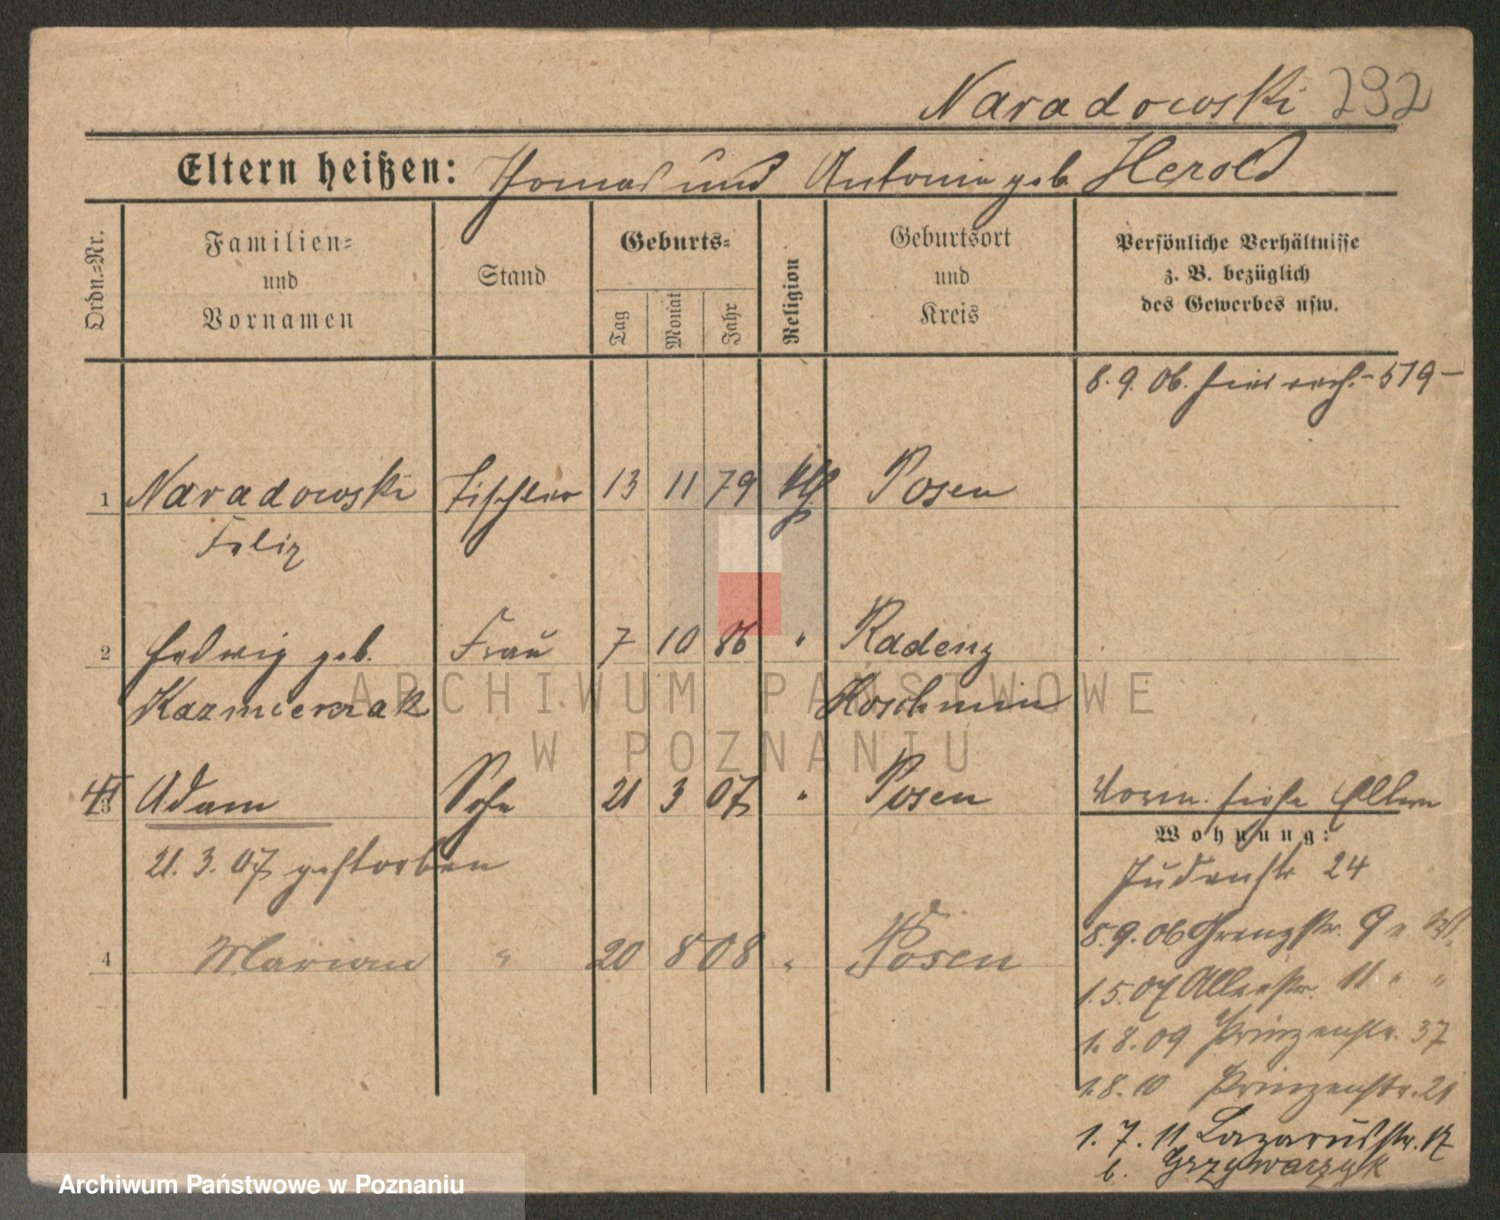 Naradowski 292
Eltern heißen: Thomas und Antonie geb Herold
Ordn.-Nr.
Familien- und Vornamen
Stand
Geburts-
Tag
Monat
Jahr
Religion
Geburtsort und Kreis
Persönliche Verhältnisse
z. B. bezüglich
des Gewerbes usw.
8. 9. 06. 519
1 Naradowski Tischler 13 11 79 kth Posen
Felix
2 Hedwig geb. Frau 7 10 86 " Radenz
Kazmierczak Koschmin
3 Adam Sohn 21 3 07 " Posen
21. 3. 07 gestorben
4 Marian " 20 8 08 " Posen
Vorm. siehe Eltern
Wohnung:
Judenstr 24
8. 9. 06 Grenzstr. 9 W.
1. 5. 07 Alleestr. 11 " "
1. 8. 09 Prinzenstr. 37
1. 8. 10 Prinzenstr. 21
1. 7. 11 Lazarusstr. 17
b. Grzywarzyk
ARCHIWUM PAŃSTWOWE
W POZNANIU
Archiwum Państwowe w Poznaniu